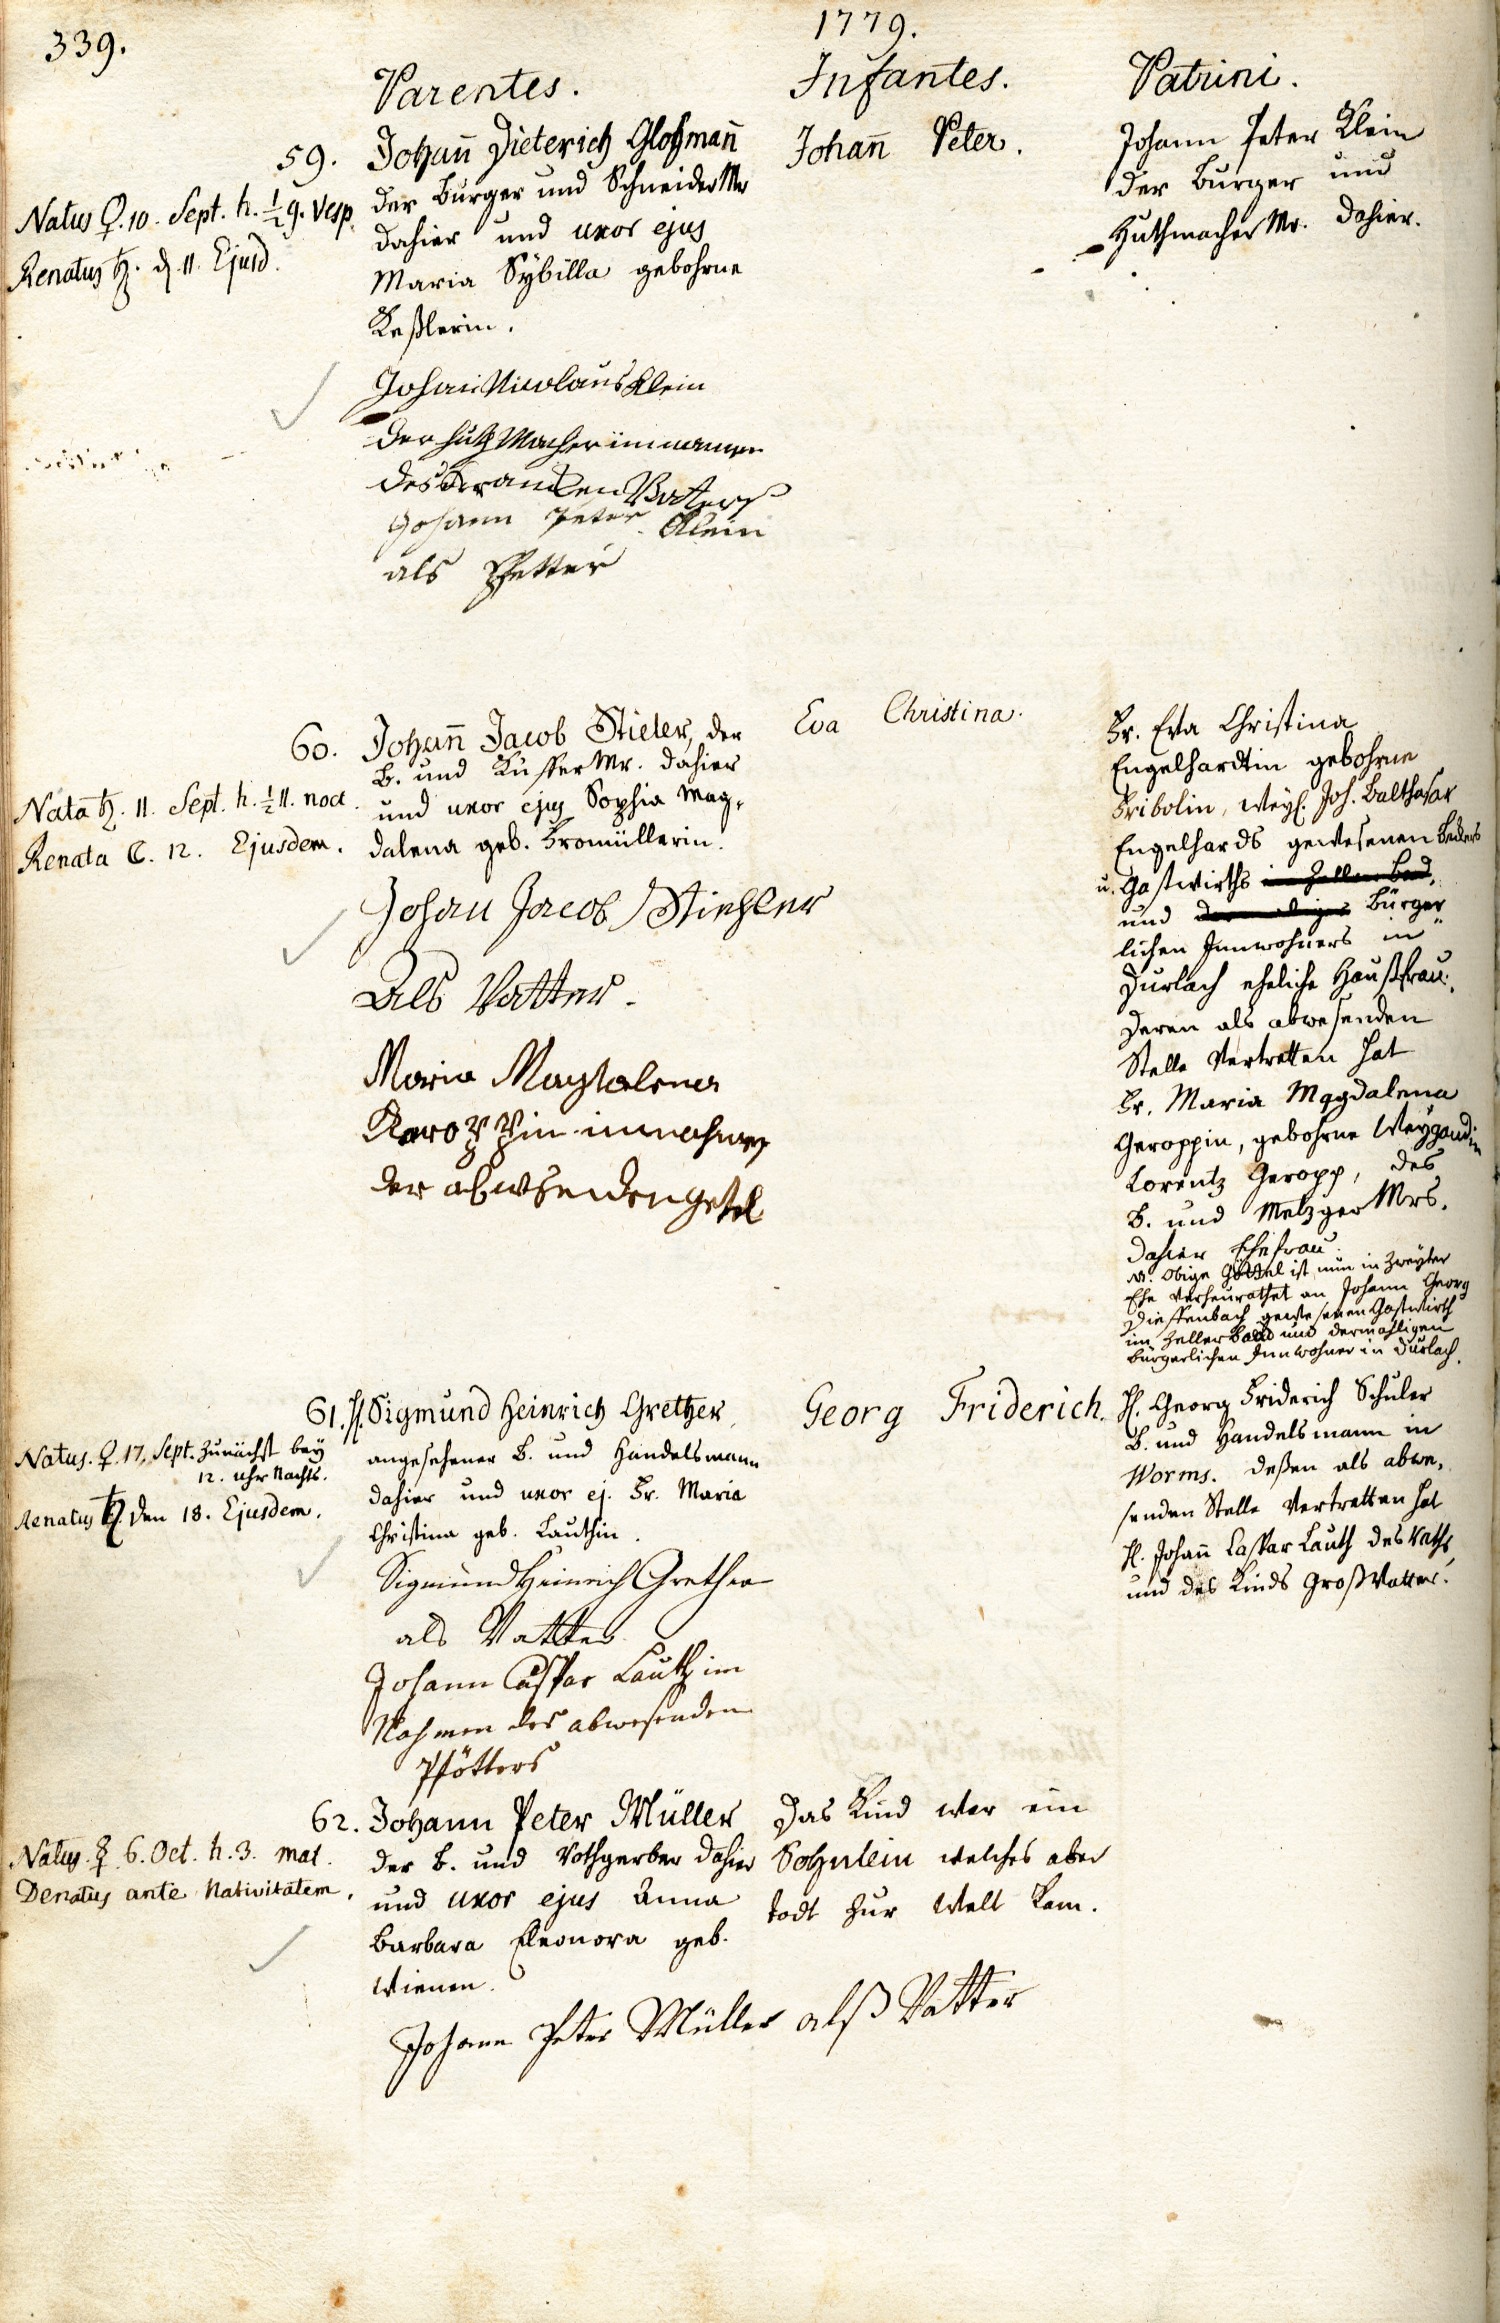 339.
1779.
Parentes.
Infantes.
Patrini.
59.
Natus ♀. 10. Sept. h. ½ 9. Vesp.
Renatus ♄. d. 11. Ejusd.
Johañ Dieterich Gloßmañ
der Burger und Schneider Mr
dahier und uxor ejus
Maria Sÿbilla gebohrne
Keßlerin.
Johañ Peter.
Johann Peter Klein
der Burger und
Huthmacher Mr. dahier.
Johan Nicolaus Klein
der Hutz Macher im namen
des Krancken Vatters
Johann Peter Klein
als Pfetter
60.
Nata ♄. 11. Sept. h. ½ 11. noct.
Renata ☾. 12. Ejusdem.
Johañ Jacob Stieler, der
B. und Kuffer Mr. dahier
und uxor ejus Sophia Mag-
dalena geb. Bromüllerin.
Eva Christina.
Fr. Eva Christina
Engelhardtin gebohrne
Fribolin, weyl. Joh. Balthasar
Engelhards gewesenen Beckers
u. Gastwirths im Zeller Bad,
und Bürger
lichen Innwohners in
Durlach eheliche Haußfrau.
deren als abwesenden
Stelle vertretten hat
Fr. Maria Magdalena
Geroppin, gebohrne Weygandin
Lorentz Geropp, des
B. und Metzger Mrs.
dahier Ehefrau.
obige Göttel ist nun in zweyter
Ehe verheurathet an Johann Georg
Dieffenbach gewesenen Gastwirth
im Zeller Baad und dermahligen
bürgerlichen Innwohner in Durlach.
Johan Jacob Stiehler
Als Vatter.
Maria Magtalena
Karoppin im nahmen
der abwesenden getel
61.
Natus. ♀. 17. Sept. zunächst bey
12. uhr Nachts.
Renatus ♄. den 18. Ejusdem.
H. Sigmund Heinrich Grether
angesehener B. und Handelsmann
dahier und uxor ej. Fr. Maria
Christina geb. Lauthin.
Georg Friderich.
H. Georg Friderich Schuler
B. und Handelsmann in
Worms. deßen als abwe-
senden Stelle vertretten hat
H. Johañ Caspar Lauth des Raths
und des Kinds Großvatter.
Sigmund Heinrich Grether
als Vatter
Johann Caspar Lauth im
Nahmen des abwesenden
Pfötters
62.
Natus ☿ 6. Oct. h. 3. mat.
Denatus ante Nativitatem.
Johann Peter Müller
der B. und Rothgerber dahier
und uxor ejus Anna
Barbara Eleonora geb.
Wienen.
Das Kind war ein
Sohnlein welches aber
todt zur Welt kam.
Johann Peter Müller alß Vatter